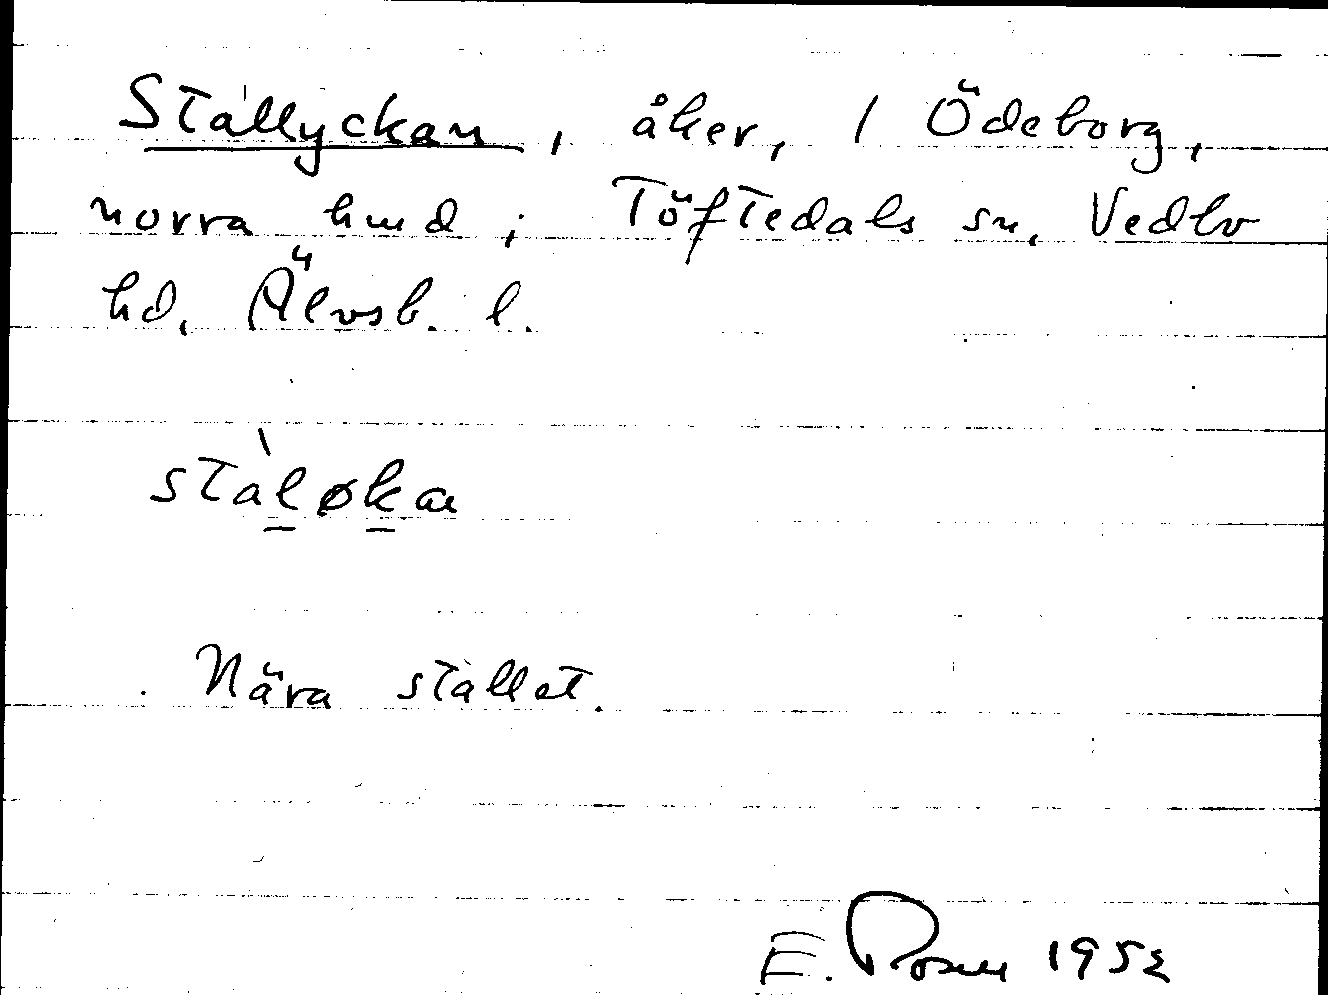 Stallyckan, åker, 1 Ödeborg,
norra hmd; Töftedals sn, Vedbo
hd, Älvsb. l.
stàløka
Nära stallet.
E. Rosell 1952